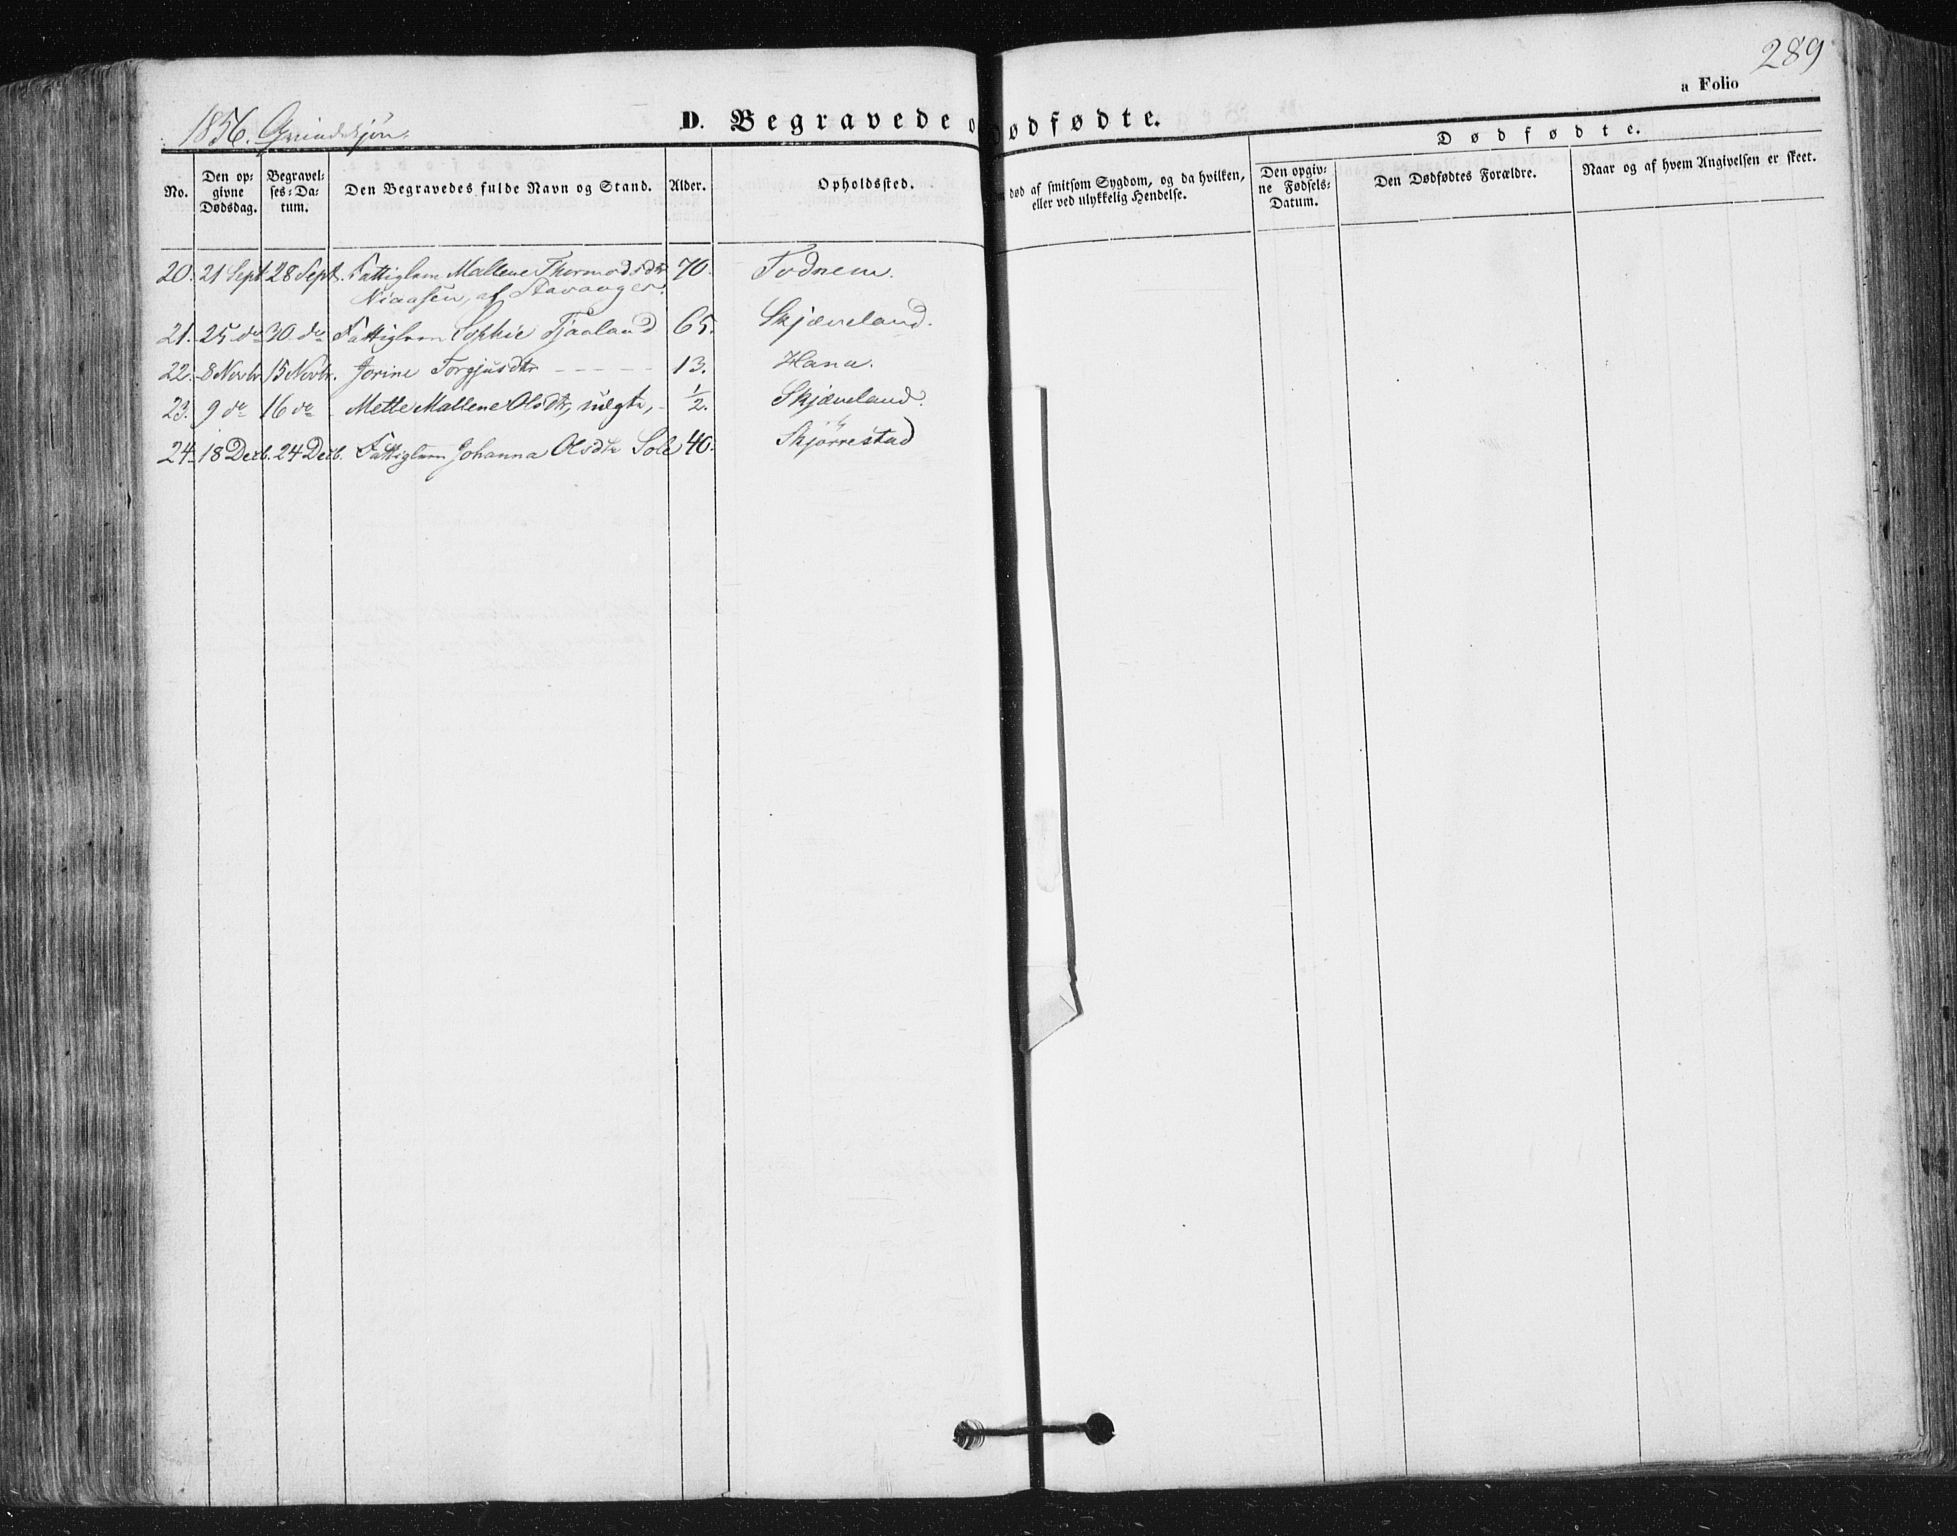 289
a Folio
1856. Qvindekjøn.
D. Begravede o Dødfødte.
Dødfødte.
No.
Den op-
givne
Dødsdag.
Begravel-
ses-Da-
tum.
Den Begravedes fulde Navn og Stand.
Alder.
Opholdssted.
død af smitsom Sygdom, og da hvilken,
eller ved ulykkelig Hendelse.
Den opgiv-
ne Fødsels-
Datum.
Den Dødfødtes Forældre.
Naar og af hvem Angivelsen er skeet.
20. 21 Sept. 28 Sept. Fattiglem Mallene Thormodsdtr 70. Fodnem.
af Stavanger.
21. 25 do 30. do Fattiglem Sophie Tjaaland 65. Skjæveland.
22. 8 Novbr 15 Novbr. Jorine Torgjusdtr - - - - - 13. Hana.
23. 9 do 16 do Mette Mallene Olsdtr, uægte, - 1/2. Skjæveland.
24. 18 Decb. 24 Decb. Fattiglem Johanna Olsdtr Sole 40. Skjørrestad